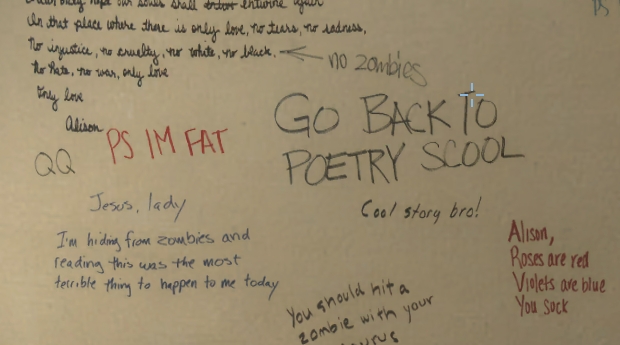 hope our souls shall entwine again
In that place where there is only love, no tears, no sadness,
No injustice, no cruelty, no white, no black.
no zombies
No hate, no war, only love
Only love
Alison
PS IM FAT
QQ
GO BACK TO
POETRY SCOOL
Jesus, lady
Cool story bro!
I'm hiding from zombies and
reading this was the most
terrible thing to happen to me today
Alison,
Roses are red
Violets are blue
You sock
You should hit a
zombie with your
PS